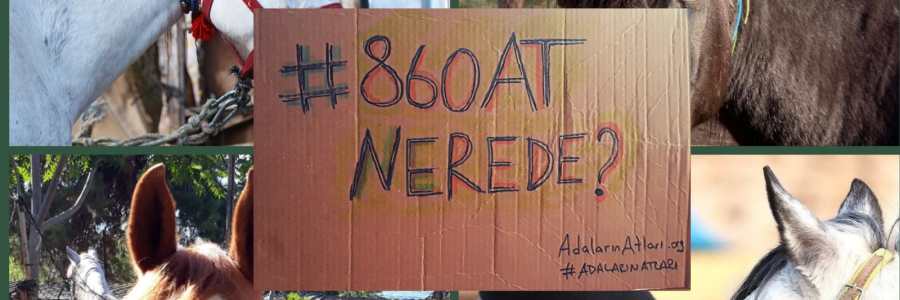 #860AT
NEREDE?
AdalarınAtları.org
#ADALARINATLARI